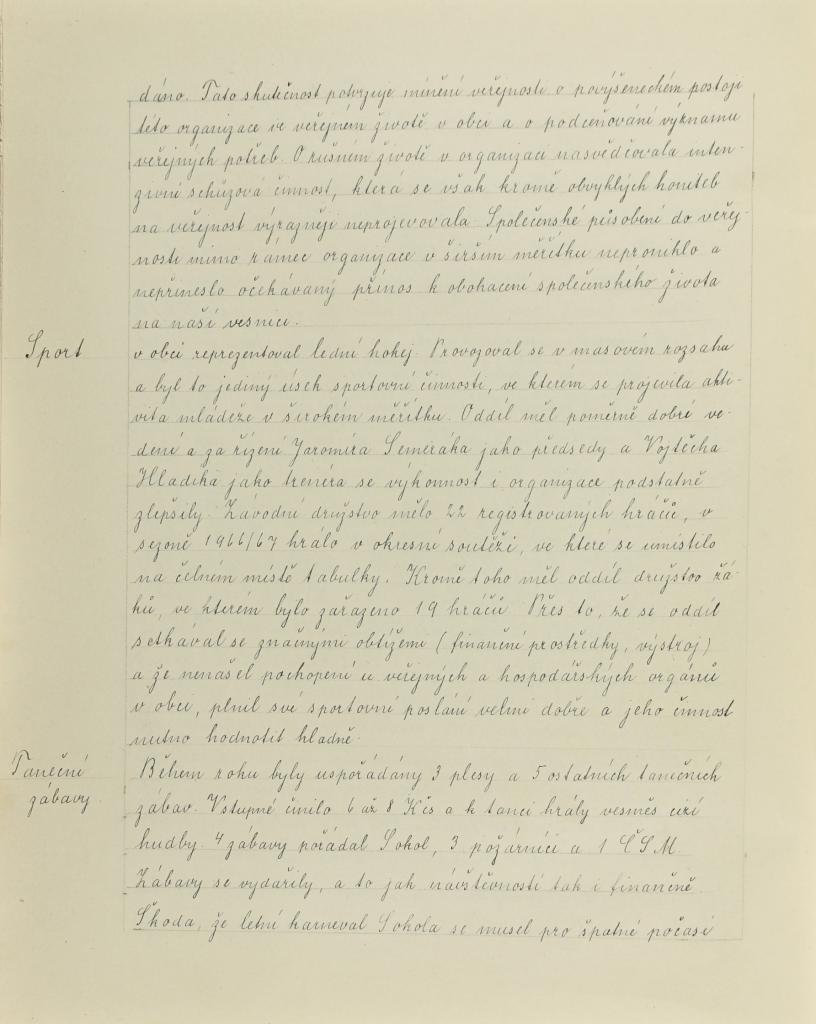 dáno. Tato skutečnost potvrzuje mínění veřejnosti o povýšeneckém postoji
této organizace ve veřejném životě v obci a o podceňování významu
veřejných potřeb. O rušném životě v organizaci nasvědčovala inten-
zivní schůzová činnost, která se však kromě obvyklých honiteb
na veřejnost výrazněji neprojevovala. Společenské působení do veřej-
nosti mimo rámec organizace v širším měřítku neproniklo a
nepřineslo očekávaný přínos k obohacení společenského života
na naší vesnici.
Sport
v obci reprezentoval lední hokej. Provozoval se v masovém rozsahu
a byl to jediný úsek sportovní činnosti, ve kterém se projevila akti-
vita mládeže v širokém měřítku. Oddíl měl poměrně dobré ve-
dení a za řízení Jaromíra Semeráka jako předsedy a Vojtěcha
Hladíka jako trenéra se výkonnost i organizace podstatně
zlepšily. Závodní družstvo mělo 22 registrovaných hráčů, v
sezoně 1966/67 hrálo v okresní soutěži, ve které se umístilo
na čelném místě tabulky. Kromě toho měl oddíl družstvo žá-
ků, ve kterém bylo zařazeno 19 hráčů. Přes to, že se oddíl
setkával se značnými obtížemi (finanční prostředky, výstroj)
a že nenašel pochopení u veřejných a hospodářských orgánů
v obci, plnil své sportovní poslání velmi dobře a jeho činnost
nutno hodnotit kladně.
Taneční
zábavy.
Během roku byly uspořádány 3 plesy a 5 ostatních tanečních
zábav. Vstupné činilo 6 až 8 Kčs a k tanci hrály vesměs cizí
hudby. 4 zábavy pořádal Sokol, 3 požárníci a 1 ČSM.
Zábavy se vydařily, a to jak návštěvností tak i finančně.
Škoda, že letní karneval Sokola se musel pro špatné počasí